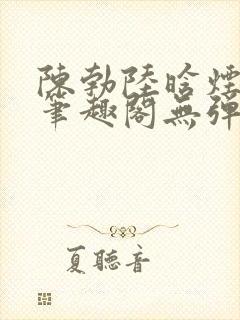 陳勃陸晗煙
筆趣閣無彈
夏聽音